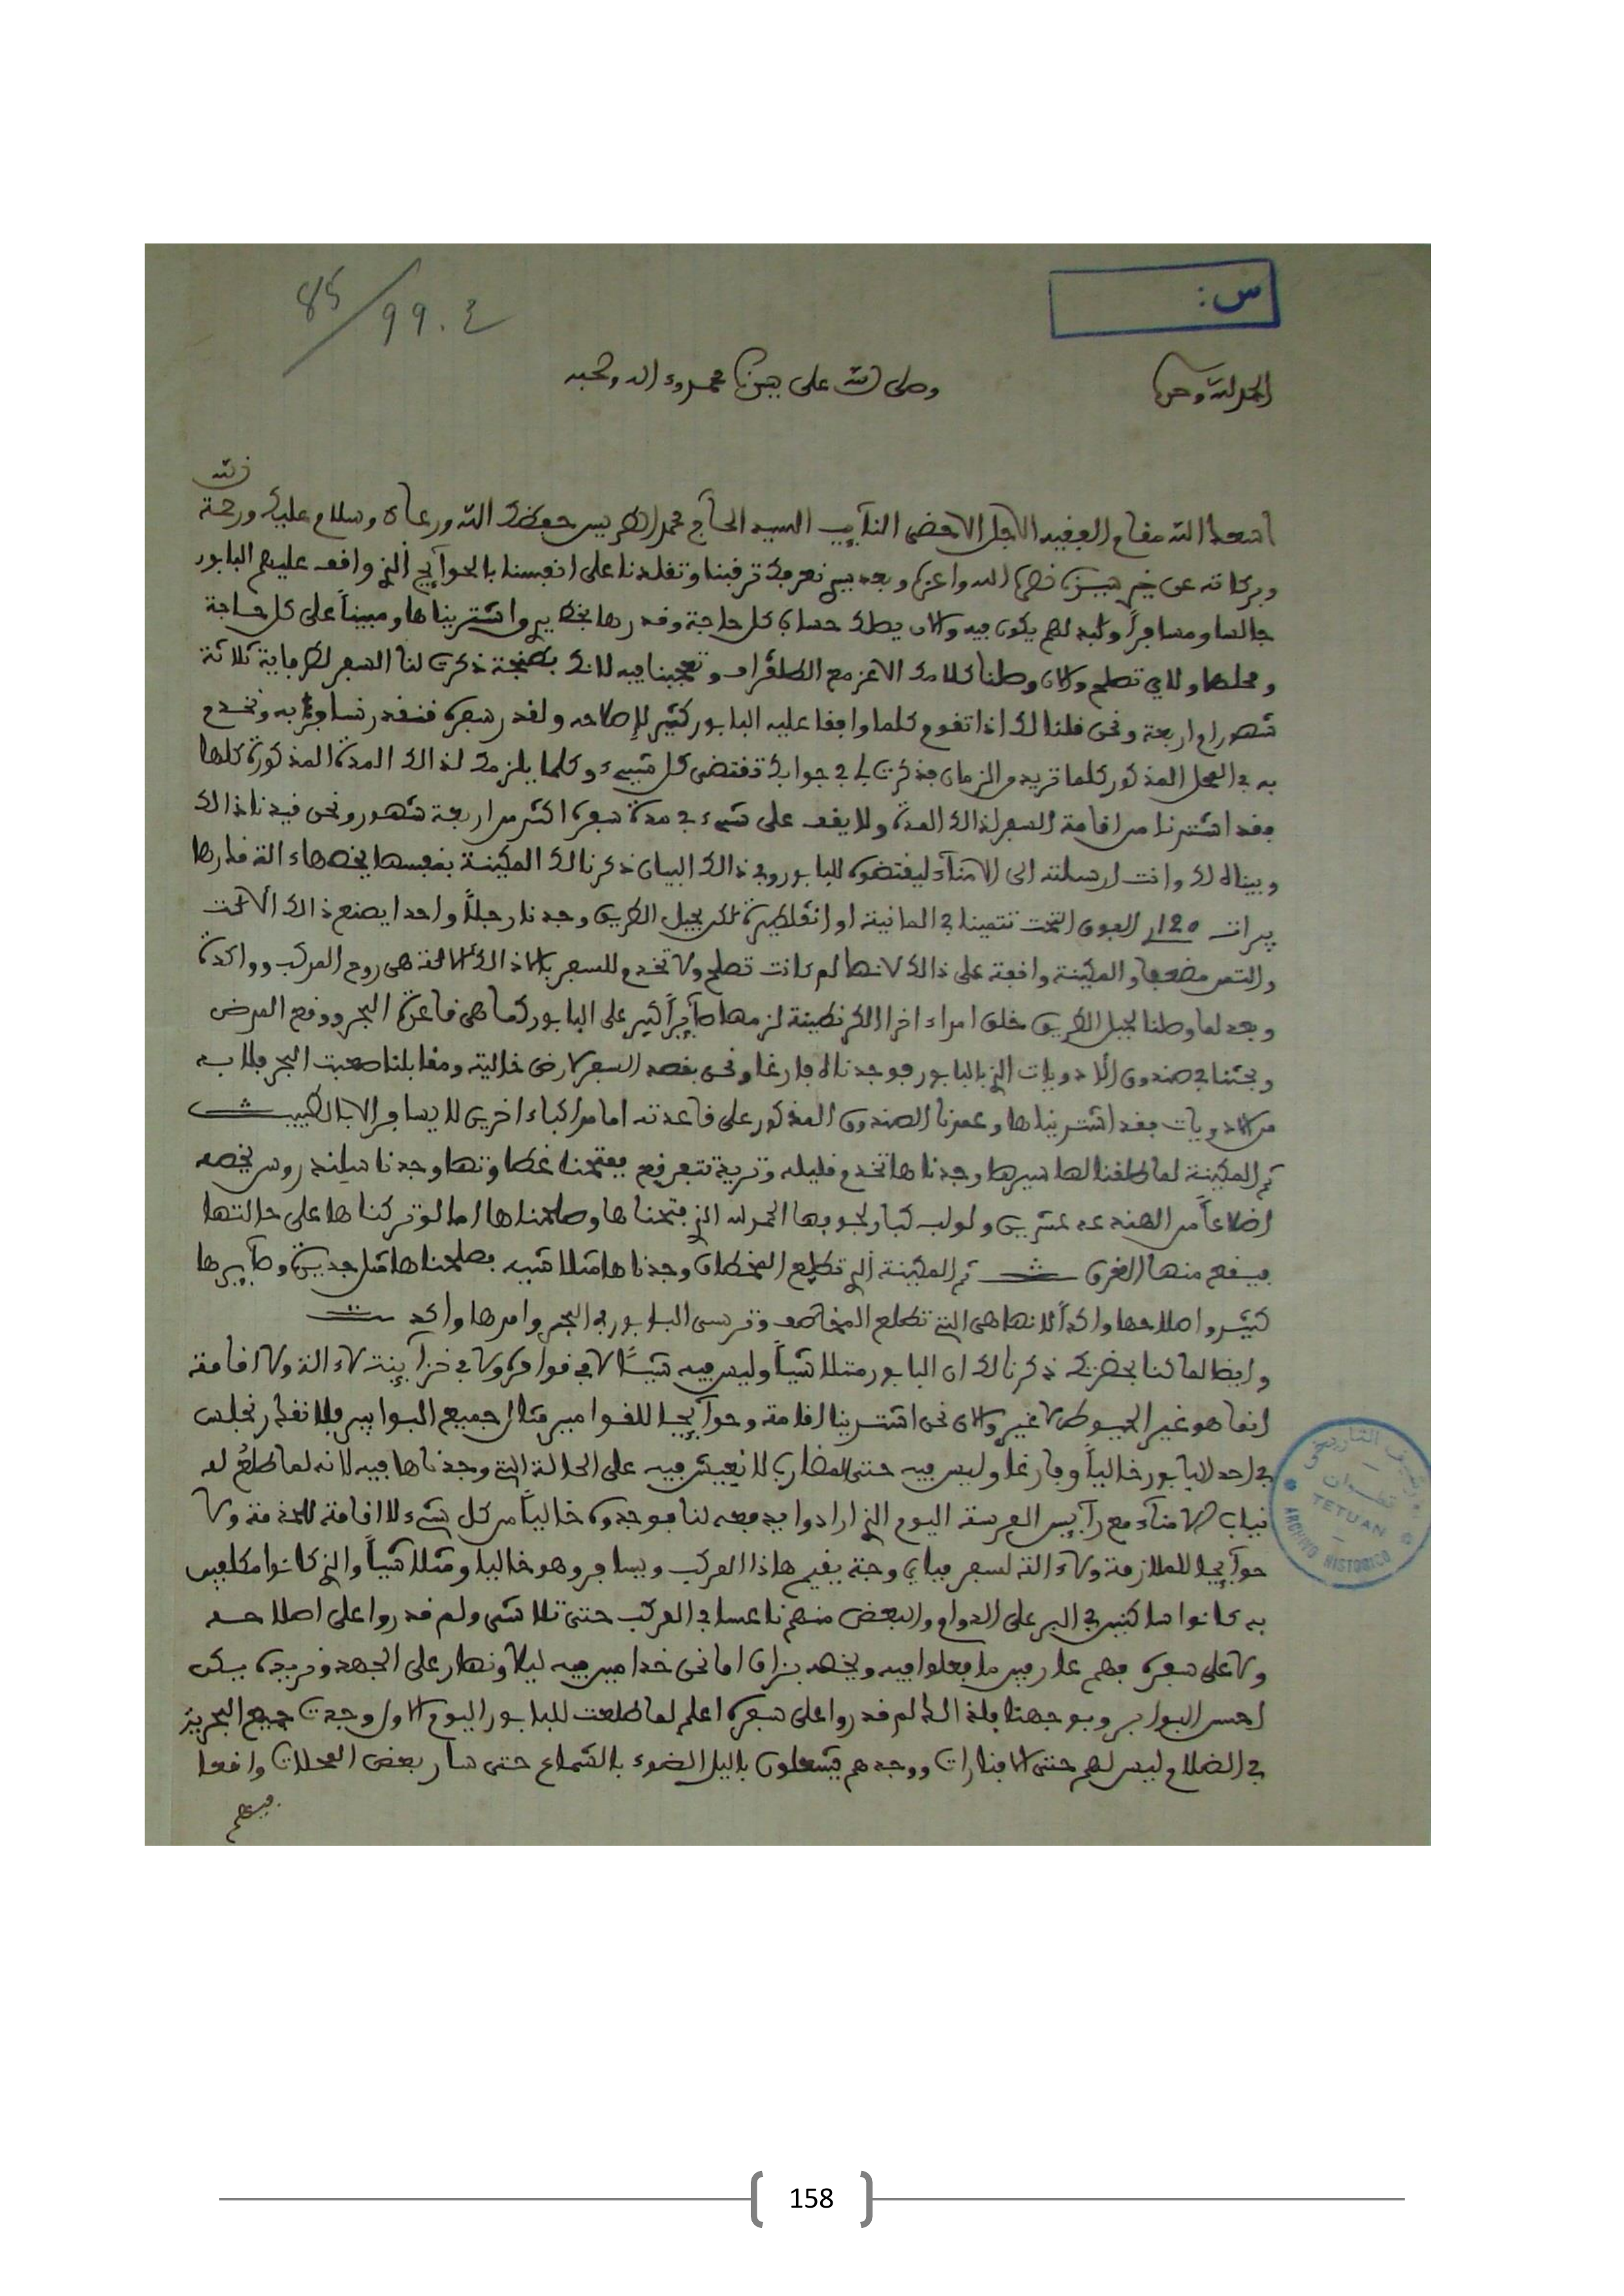 س:
85/99.٤
الحمد لله وحده وصلى الله على سيدنا محمد وءاله وصحبه
الله
اسعد الله مقام الفقيه الاجل الاحضى النآيب السيد الحآج محمد الطريس حفظك الله ورعاك وسلام عليك ورحمة
وبركاته عن خير سيدنا نصره الله واعزه وبعد نعرفك ترفبنا وتفلدنا على انفسنا بالحوآيج الذي واقف عليهم البابور
جالسا ومسافراً يكون فيه والان يصلك حساب كل حاجة وقدرها واشتريناها ومبيناً على كل حاجة
ومحلها ولاي تصلح والان وصلنا كتابك الاعز مع الطلغراف وتعجبنا فيه لانك بطنجة ذكرت لنا السفر لطرفاية ثلاثة
شهور او اربعة ونحن قلنا لك اذا تقوم كلما واقفا عليه البابور كثير لإصلاحه ولقدر سفره فنقدر نسافر به ونخدم
به في المحل المذكور كلما تريد من الزمان فذكرت لي في جوابك تقتضى كل شيء وكلما يلزمك لذالك المدة المذكورة كلها
فقد اشترنا من اقامة السفر لذالك المدة ولا يقف على شيء في مدة سفره اكثر من اربعة شهور ونحن قيدنا ذالك
وبيناه لك وانت ارسلته الى الامنآء ليقتضوه للبابور وفي ذالك البيان ذكرنا لك المكينة بنفسها يخصها ءالة
120 في المانية او انقلطيرة لكن بجبل الطريق وجدنا رجلاً واحدا يصنع ذالك الالات
والمكينة واقفة على ذالك لانها لم كانت تصلح ولا تخدم للسفر بلا ذالك الالة هي روح المركب وواكدة
وبعد لما وصلنا لجبل الطريق خلق امراء اخرا الكرنطينة لزمها صآيراً كبير على البابور كما هي قاعدة البحر ودفع المرض
وبحثنا في صندوق الادويات الذي بالبابور فوجدناه فارغا ونحن بقصد السفر لارض خالية ومقابلنا صعبت البحر فلا به
من الادويات فقد اشتريناها وعمرنا الصندوق المذكور على قاعدته اما مراكباء اخرين لا يسافر الا بالطبيب
ثم المكينة لما طلقنا لها سيرها وجدناها تخدم قليله وتريد تتفرقع ففتحنا غطاوتها وجدنا سلندروس يخصه
اضلاعاً من الهند عدد عشرين ولولب كبار لجوبها الحمد لله الذي فتحناها وصلحناها اما لو تركناها على حالتها
فيقع منها الغرق ثم المكينة الذي تطلع المخطاف وجدناها متلاشيه فصلحناها مثل جديدة وصآيرها
كثير واصلاحها واكداً لانها هي التي تطلع المخاطف وترسى البابور في البحر وامرها واكد
وايضا لما كنا بحضرتك ذكرنا لك ان البابور متلاشياً وليس فيه شيئاً لا في قوامره ولا في خزآينه لا ءالة ولا اقامة
انما هو غير الحيوط لا غير والان نحن اشترينا اقامة وحوآيجا للقوامير مثال جميع البوابير فلا نقدر نجلس
في احد البابور خالياً وفارغا وليس فيه حتى الفضارى لا نعيش فيه على الحالة التي وجدناها فيه لانه لما طلع له
نياب الامنآء مع رآيس المرسة اليوم الذي ارادوا يدفعه لنا فوجدوه خالياً من كل شيء لا اقامة للخدمة ولا
حوآيجا للملازمة ولا ءالة لسفر فباي وجة يقيم هاذا المركب ويسافر وهو خاليا ومتلاشياً والذي كانوا مكلفين
به كانوا ساكنين في البر على الدوام والبعض منهم ناعسا في المركب حتى تلاشى ولم قدروا على اصلاحه
ولا على سفره فهم عارفين ما فعلوا فيه ويخصه بزاف اما نحن خدامين فيه ليلا ونهار على الجهد ونريده يكن
احسن البوابير وبوجهنا فلذالك لم قدروا على سفره اعلم لما طلعت للبابور اليوم الاول وجدت جميع البحرية
في الضلام ليس لهم حتى الافنارات ووجدهم يشعلون بالليل الضوء بالشماع حتى سار بعض المحلات واقعا
ARCHIVO HISTORICO
TETUAN
158